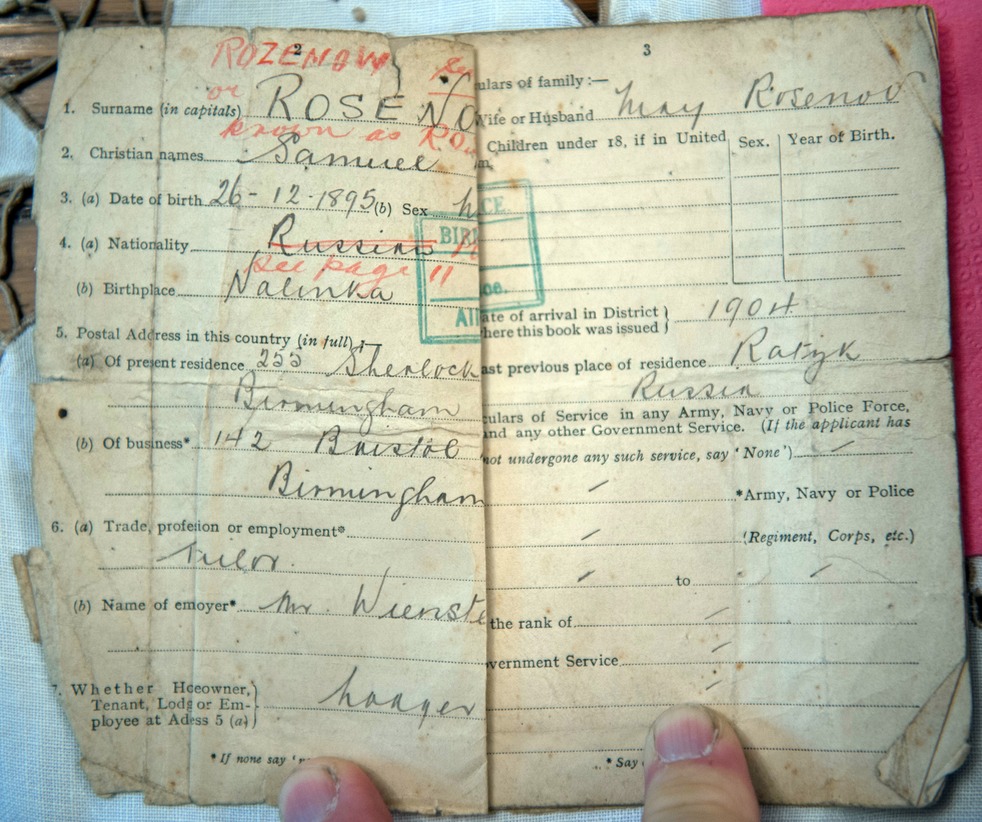 2
ROZENOW
or
1. Surname (in capitals) ROSENO
known as RO
2. Christian names Samuel
3. (a) Date of birth 26-12-1895 (b) Sex
4. (a) Nationality Russian
see page 11
(b) Birthplace Nalinka
5. Postal Address in this country (in full):—
(a) Of present residence 255 Sherlock
Birmingham
(b) Of business* 142 Bristol
Birmingham
6. (a) Trade, profesion or employment*
Tailor.
(b) Name of emoyer* Mr. Wienste
7. Whether Hoeowner,
Tenant, Lodg or Em-
ployee at Adess 5 (a)
Lodger
*If none say
3
ulars of family:—
Wife or Husband May Rosenov
Children under 18, if in United
Sex. Year of Birth.
CE.
BIR
ce.
Al
ate of arrival in District
here this book was issued 1904
ast previous place of residence Ratyk
Russia
culars of Service in any Army, Navy or Police Force,
and any other Government Service. (If the applicant has
not undergone any such service, say 'None')
*Army, Navy or Police
(Regiment, Corps, etc.)
to
the rank of
vernment Service
* Say